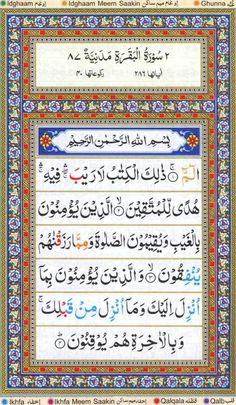 Idghaam ادغام Idghaam Meem Saakin ادغام ميم ساكن Ghunna غنه
٢ سُوْرَةُ الْبَقَرَةِ مَدَنِيَّةٌ ٨٧
اٰیاتها ٢٨٦ رکوعاتها ٤٠
بِسْمِ اللّٰهِ الرَّحْمٰنِ الرَّحِيْمِ
الٓمّٓ ۚ ذٰلِكَ الْكِتٰبُ لَا رَيْبَ ۛ فِيْهِ ۛ
هُدًى لِّلْمُتَّقِيْنَ ۙ الَّذِيْنَ يُؤْمِنُوْنَ
بِالْغَيْبِ وَيُقِيْمُوْنَ الصَّلٰوةَ وَمِمَّا رَزَقْنٰهُمْ
يُنْفِقُوْنَ ۙ وَالَّذِيْنَ يُؤْمِنُوْنَ بِمَآ
اُنْزِلَ اِلَيْكَ وَمَآ اُنْزِلَ مِنْ قَبْلِكَ ۚ
وَبِالْاٰخِرَةِ هُمْ يُوْقِنُوْنَ ؕ
Ikhfa اخفا Ikhfa Meem Saakin اخفا ميم ساكن Qalqala قلقله Qalb قلب